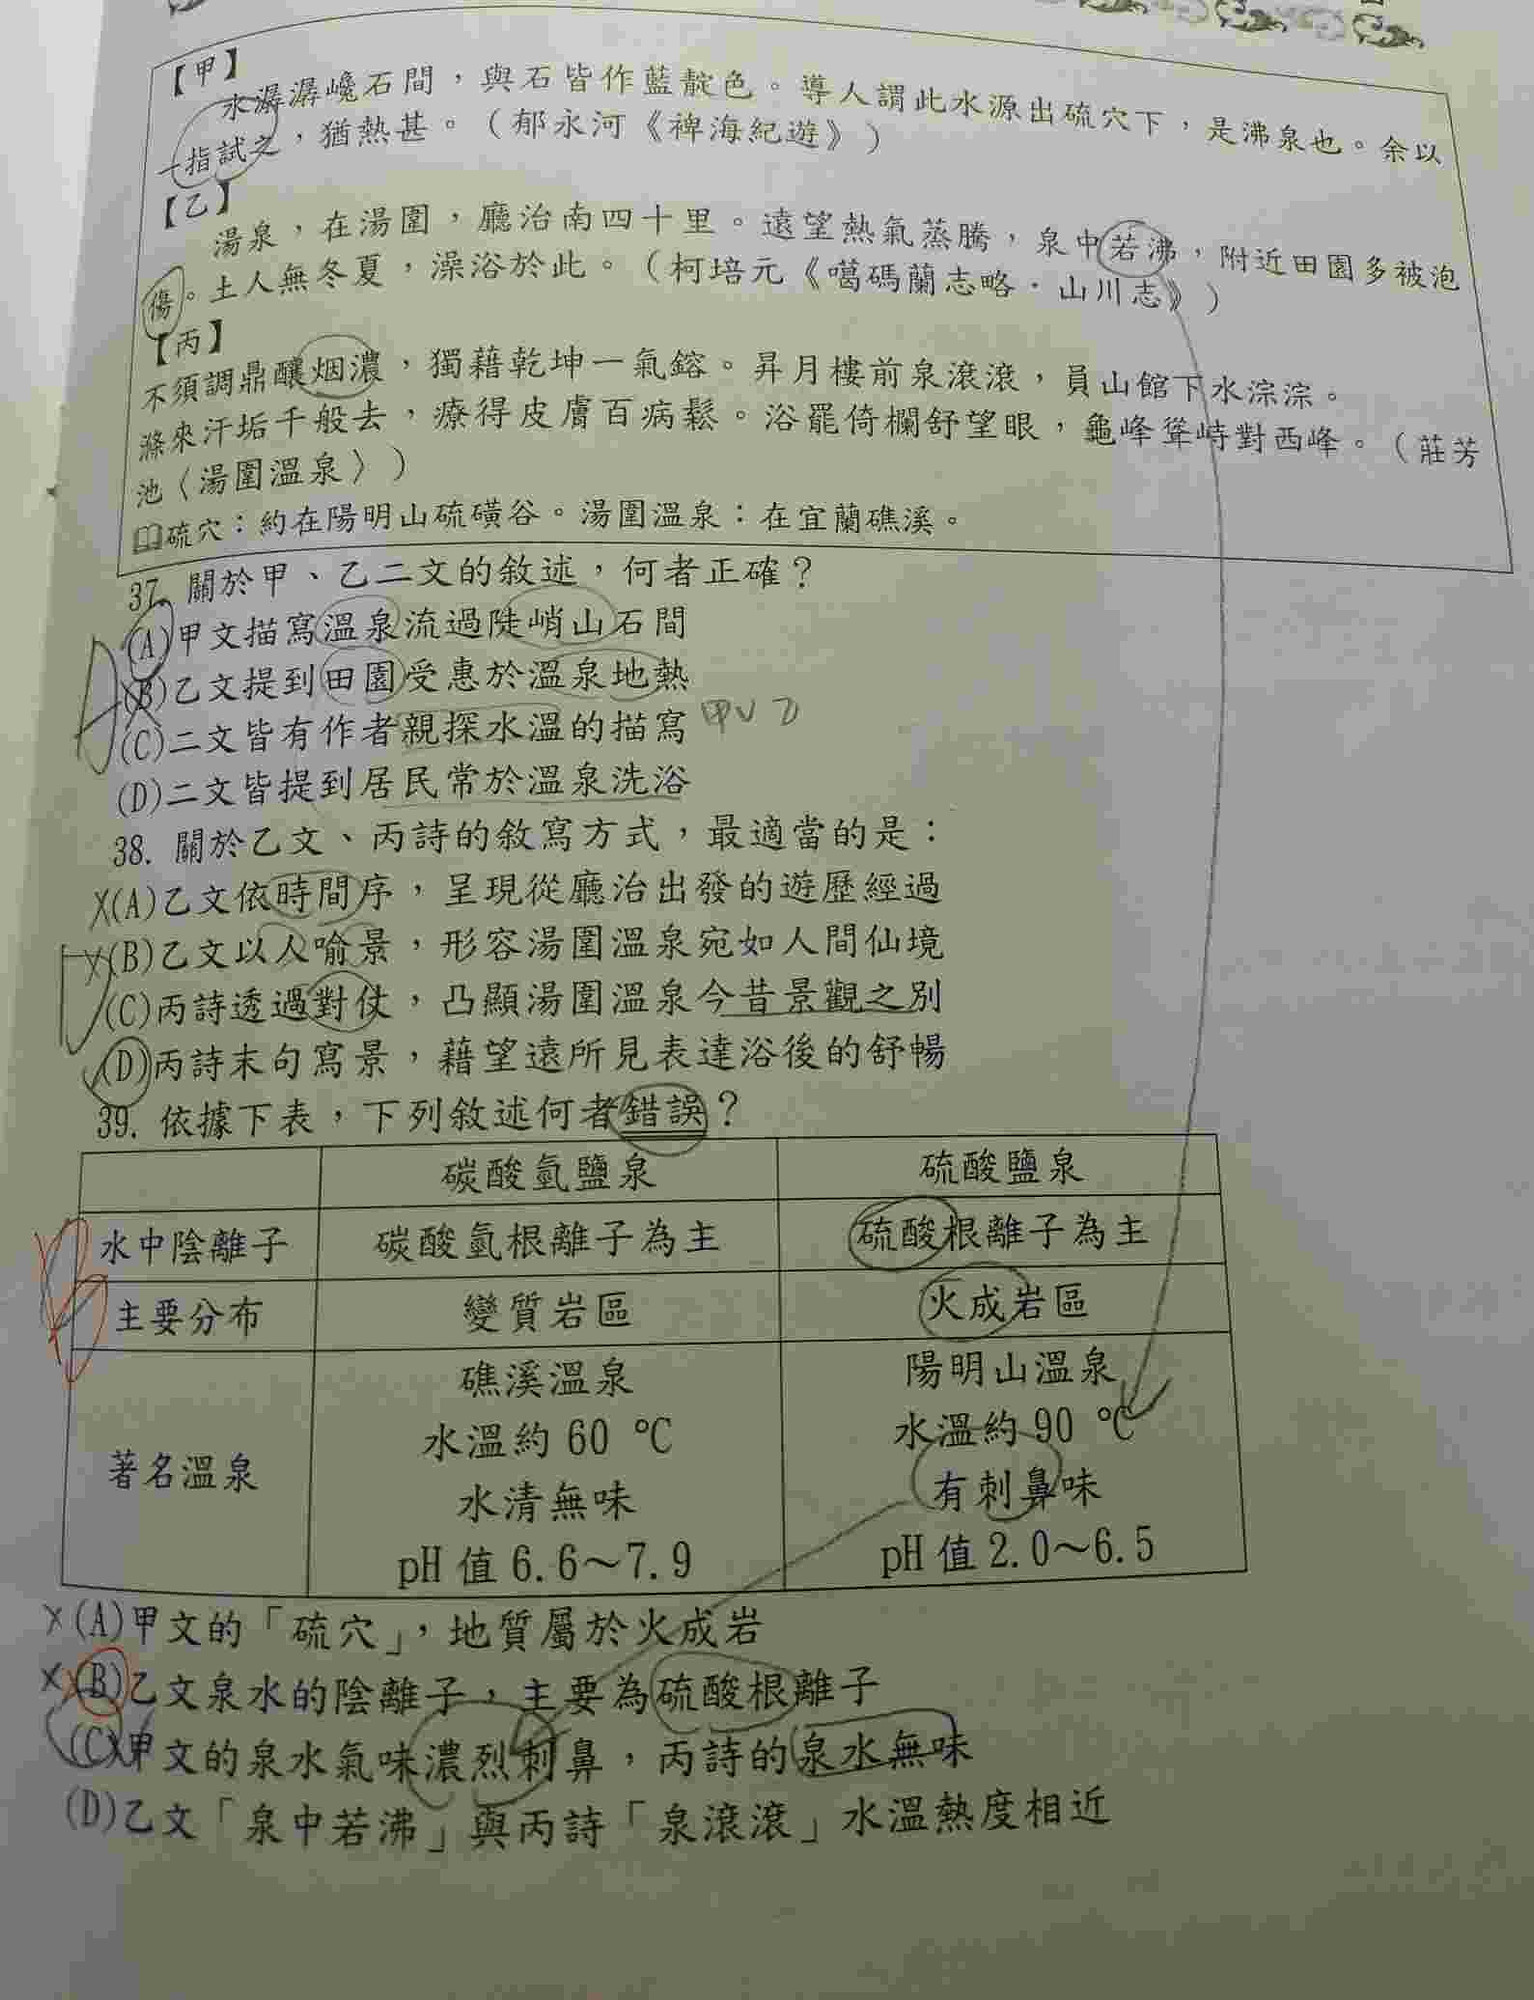 【甲】
水潺潺巉石間，與石皆作藍靛色。導人謂此水源出硫穴下，是沸泉也。余以
一指試之，猶熱甚。（郁永河《裨海紀遊》）
【乙】
湯泉，在湯圍，廳治南四十里。遠望熱氣蒸騰，泉中若沸，附近田園多被泡
傷。土人無冬夏，澡浴於此。（柯培元《噶碼蘭志略．山川志》）
【丙】
不須調鼎釀烟濃，獨藉乾坤一氣鎔。昇月樓前泉滾滾，員山館下水淙淙。
滌來汗垢千般去，療得皮膚百病鬆。浴罷倚欄舒望眼，龜峰聳峙對西峰。（莊芳
池〈湯圍溫泉〉）
硫穴：約在陽明山硫磺谷。湯圍溫泉：在宜蘭礁溪。
37. 關於甲、乙二文的敘述，何者正確？
(A)甲文描寫溫泉流過陡峭山石間
(B)乙文提到田園受惠於溫泉地熱
(C)二文皆有作者親探水溫的描寫 甲V 乙
(D)二文皆提到居民常於溫泉洗浴
38. 關於乙文、丙詩的敘寫方式，最適當的是：
X(A)乙文依時間序，呈現從廳治出發的遊歷經過
X(B)乙文以人喻景，形容湯圍溫泉宛如人間仙境
(C)丙詩透過對仗，凸顯湯圍溫泉今昔景觀之別
(D)丙詩末句寫景，藉望遠所見表達浴後的舒暢
39. 依據下表，下列敘述何者錯誤？
碳酸氫鹽泉 硫酸鹽泉
水中陰離子 碳酸氫根離子為主 硫酸根離子為主
主要分布 變質岩區 火成岩區
著名溫泉 礁溪溫泉 陽明山溫泉
水溫約 60 ℃ 水溫約 90 ℃
水清無味 有刺鼻味
pH 值 6.6～7.9 pH 值 2.0～6.5
X(A)甲文的「硫穴」，地質屬於火成岩
X(B)乙文泉水的陰離子，主要為硫酸根離子
(C)甲文的泉水氣味濃烈刺鼻，丙詩的泉水無味
(D)乙文「泉中若沸」與丙詩「泉滾滾」水溫熱度相近